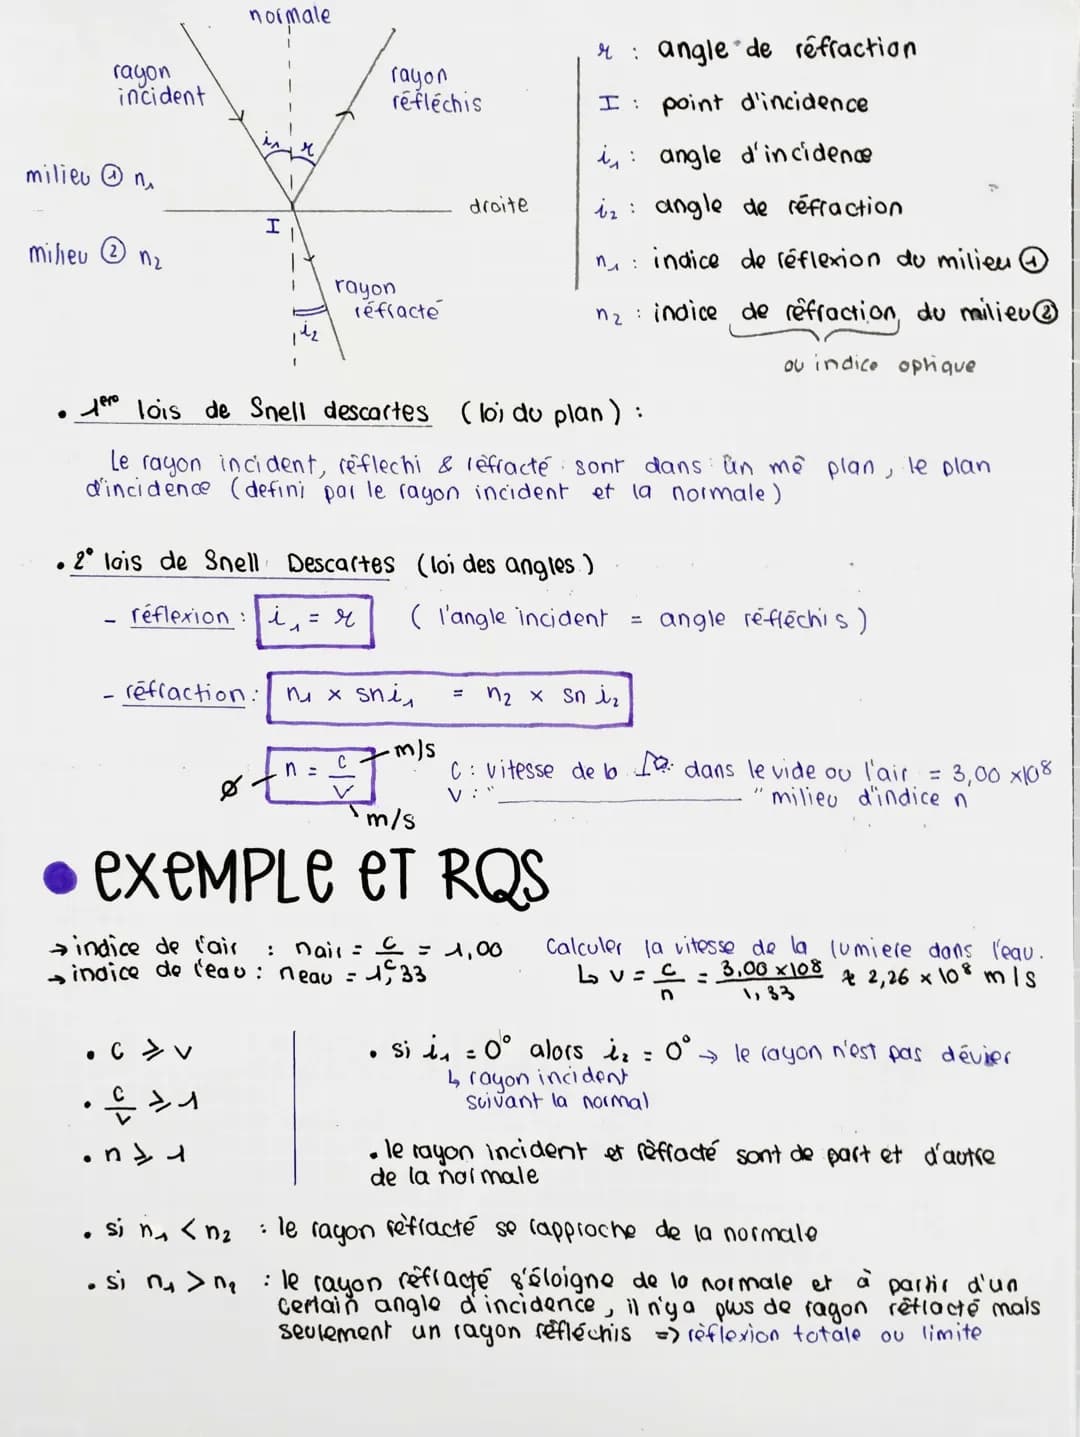 normale
rayon
incident
rayon
réfléchis
i₁ r
milieu ① n₁
droite
I
milieu ② n₂
rayon
réfracté
i₂
r : angle de réfraction
I : point d'incidence
i₁ : angle d'incidence
i₂ : angle de réfraction
n₁ : indice de réflexion du milieu ①
n₂ : indice de réfraction du milieu ②
ou indice optique
• 1ere lois de Snell descartes (loi du plan) :
Le rayon incident, réflechi & réfracté sont dans un mê plan, le plan
d'incidence (defini par le rayon incident et la normale)
• 2° lois de Snell Descartes (loi des angles)
- réflexion : i₁ = r ( l'angle incident = angle réfléchis)
- réfraction : n₁ × sni₁ = n₂ × sn i₂
ø n = c/v m/s
m/s
C : vitesse de la dans le vide ou l'air = 3,00 ×10⁸
v : " " milieu d'indice n
• EXEMPLE ET RQS
→ indice de l'air : nair = c/c = 1,00
→ indice de l'eau : neau = 1,33
Calculer la vitesse de la lumiere dans l'eau.
↳ v = c/n = 3,00 ×10⁸/1,33 ≈ 2,26 × 10⁸ m/s
• c ⩾ v
• c/v ⩾ 1
• n ⩾ 1
• si i₁ = 0° alors i₂ = 0° → le rayon n'est pas dévier
↳ rayon incident
suivant la normal
• le rayon incident et réfracté sont de part et d'autre
de la normale
• si n₁ < n₂ : le rayon réfracté se rapproche de la normale
• si n₁ > n₂ : le rayon réfracté s'éloigne de la normale et à partir d'un
certain angle d'incidence, il n'y a plus de rayon réfracté mais
seulement un rayon réfléchis => réflexion totale ou limite